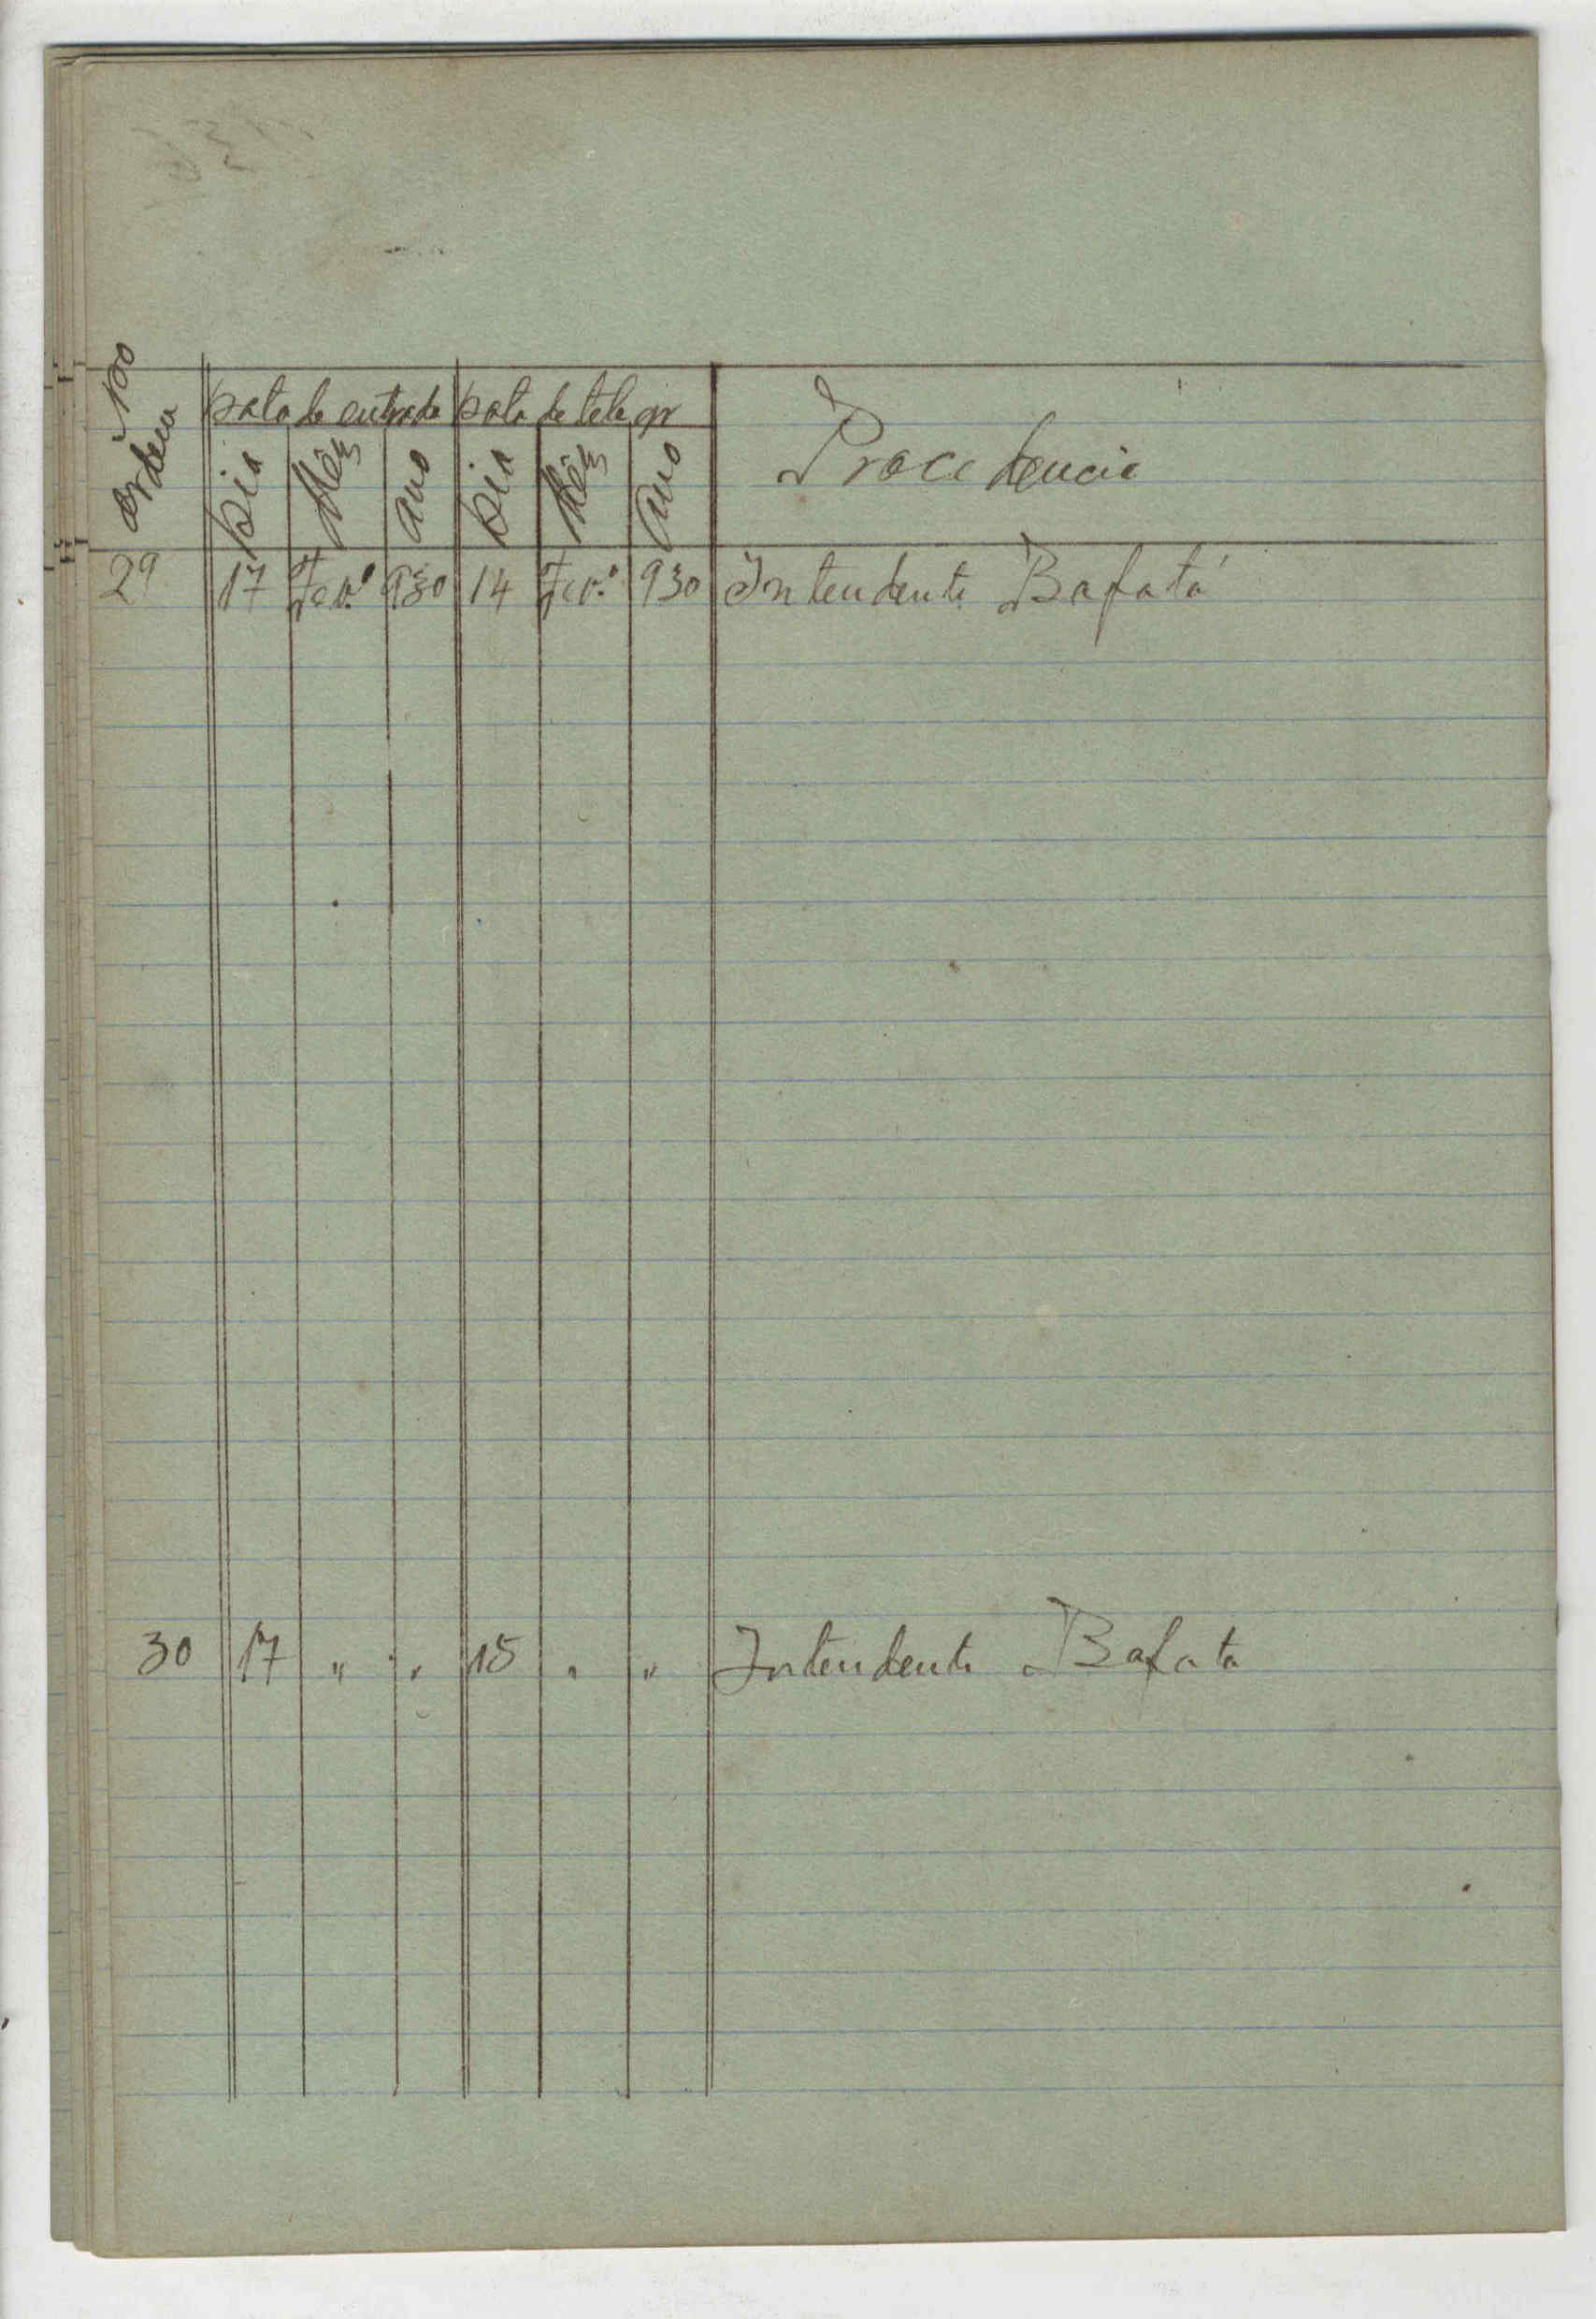 Nº de ordem
Data de entrada Data de telegr
Procedencia
Dia Mês Ano Dia Mês Ano
29 17 Fevº 930 14 Fevº 930 Intendente Bafatá
30 17 " " 15 " " Intendente Bafata